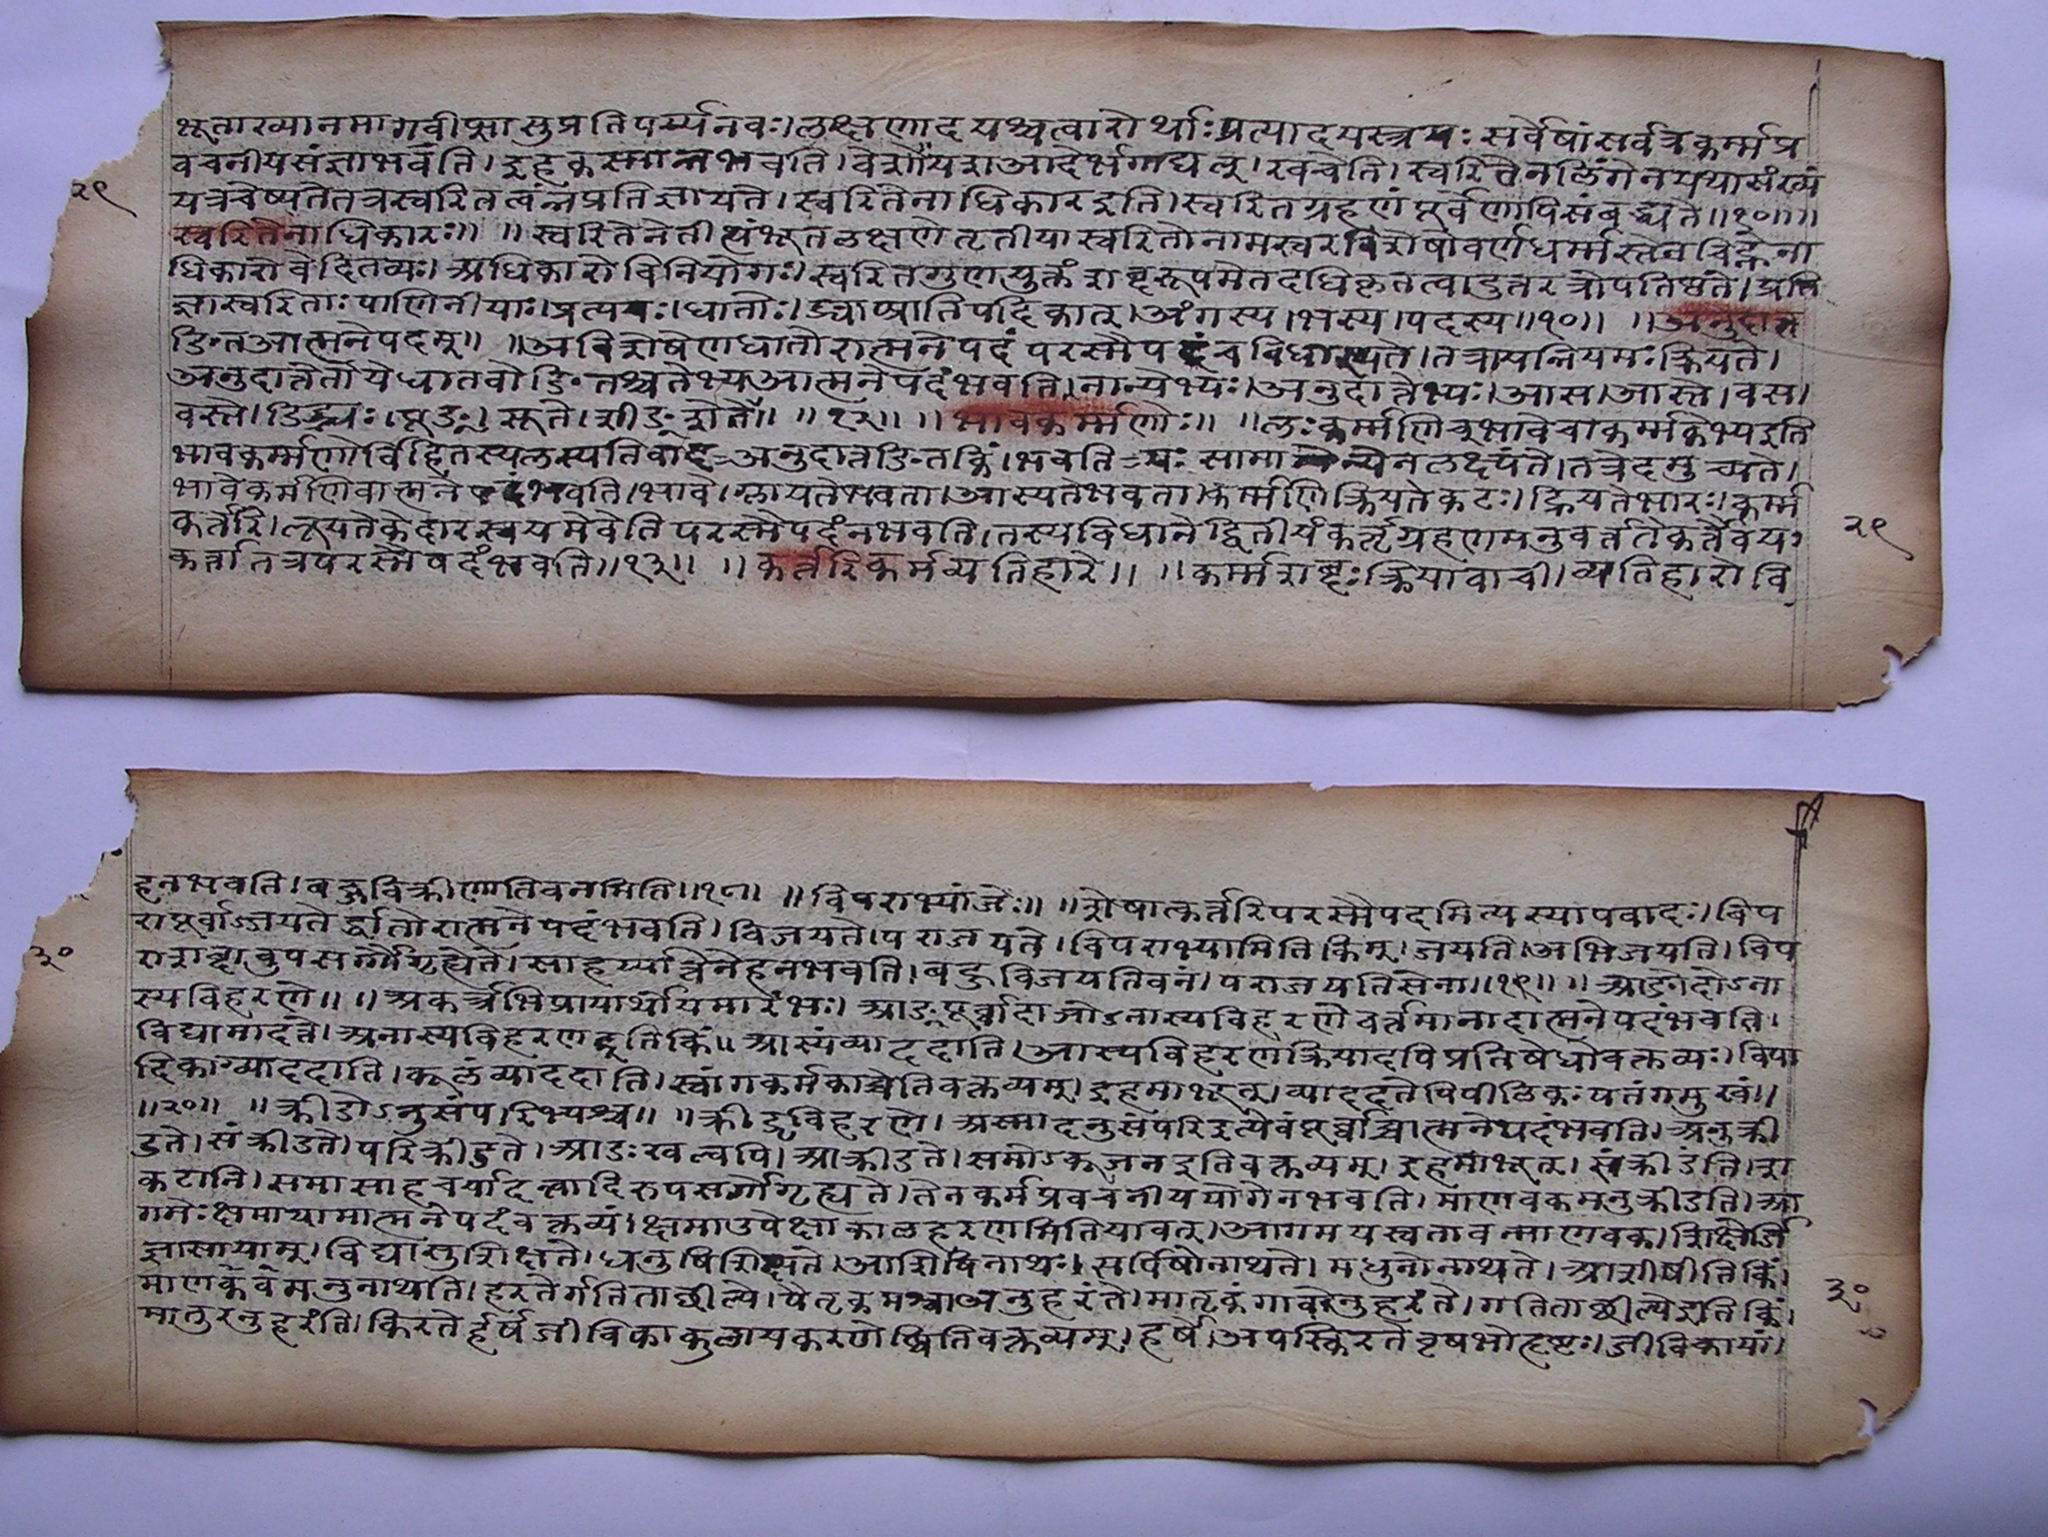 भूताख्यानभागवीप्सासुप्रतिपर्य्यनवः।लक्षणादयश्चत्वारोर्थाःप्रत्यादयस्त्रयः सर्वेषांसर्वत्रकर्म्मप्र
वचनीयसंज्ञाभवंति।इहकस्मान्नभवति।वेशोयशआदेर्भगाद्यल्।खचेति।स्वरितेनलिंगेनयथासंख्यं
२९
यत्रचेष्यतेतत्रस्वरितत्वंन्नप्रतिज्ञायते।स्वरितेनाधिकारइति।स्वरितग्रहणंपूर्वेणापिसंबद्ध्यते॥१०॥॥
स्वरितेनाधिकारः॥ ॥स्वरितेनेतीत्थंभूतलक्षणेतृतीयास्वरितोनामस्वरविशेषोवर्णधर्म्मस्तेनचिह्नेना
धिकारोवेदितव्यः।अधिकारोविनियोगः।स्वरितगुणयुक्तंशब्दरूपमेतदधिकृतत्वादुतरत्रोपतिष्ठंते।प्रति
ज्ञास्वरिताःपाणिनीयाः।प्रत्ययः।धातोः।ङ्याप्प्रातिपदिकात्।अंगस्य।भस्य।पदस्य॥१०॥ ॥अनुदात्त
ङितआत्मनेपदम्॥ ॥अविशेषेणधातोरात्मनेपदं परस्मैपदंचविधास्यते।तत्रायन्नियमःक्रियते।
अनुदात्तेतोयेधातवोङितश्चतेभ्यआत्मनेपदंभवति।नान्येभ्यः।अनुदात्तेभ्यः।आस।आस्ते।वस।
वस्ते।ङिद्भ्यः।षूङ्।सूते।शीङ्शेते॥ ॥१२॥ ॥भावकर्म्मणोः॥ ॥लःकर्म्मणिचभावेचाकर्म्मकेभ्यइति
भावकर्म्मणोर्विहितस्यलस्यतिबादअनुदात्तङितकिं।भवति यः सामान्येनलक्ष्यंते।तत्रेदमुच्यते।
भावेकर्मणिवात्मनेपदंभवति।भावे।ग्लायतेभवता।आस्यतेभवता।कर्म्मणिक्रियतेकटः।ह्रियतेभारः।कर्म्म
कर्तरि।लूयतेकेदारस्वयमेवेतिपरस्मैपदंनभवति।तस्यविधानेद्वितीयंकर्तृग्रहणमनुवर्त्ततेकर्तैवय
२९
कर्त्तातत्रपरस्मैपदंभवति॥१३॥ ॥कर्त्तरिकर्मव्यतिहारे॥ ॥कर्म्मशब्दःक्रियावाची।व्यतिहारोवि
हनभवति।बहुविक्रीणातिवनमिति॥१८॥ ॥विपराभ्यांजेः॥ ॥शेषात्कर्तरिपरस्मैपदमित्यस्यापवादः।विप
रापूर्वाज्जयतेर्द्धातोरात्मनेपदंभवति।विजयते।पराजयते।विपराभ्यामितिकिम्।जयति।अभिजयति।विप
३०
राशब्दावुपसर्गौगृह्येते।साहचर्य्यात्तेनेहनभवति।बहुविजयतिवनं।पराजयतिसेना॥१९॥ ॥आङोदोऽना
स्यविहरणे॥ ॥अकर्त्रभिप्रायार्थोयमारंभः।आङ्पूर्वाद्दाञोऽनास्यविहरणेवर्तमानादात्मनेपदंभवति।
विद्यामादत्ते।अनास्यविहरणइतिकिं॥आस्यंव्याददाति।आस्यविहरणक्रियादपिप्रतिषेधोवक्तव्यः।विपा
दिकांव्याददाति।कूलंव्याददाति।स्वांगकर्मकाच्चेतिवक्तव्यम्।इहमाभूत्।व्याददतेपिपीलिकःपतंगमुखं॥
॥२०॥ ॥क्रीडोऽनुसंपरिभ्यश्च॥ ॥क्रीडृविहरणे।अस्मादनुसंपरिइत्येवंपूर्वाच्चात्मनेपदंभवति।अनुक्री
डते।संक्रीडते।परिक्रीडते।आङःखल्वपि।आक्रीडते।समोऽकूजनइतिवक्तव्यम्।इहमाभूत्।संक्रीडंति।श
कटानि।समासाहचर्यादन्वादिरुपसर्गोगृह्यते।तेनकर्मप्रवचनीययोगेनभवति।माणवकमनुक्रीडति।आ
गमेःक्षमायामात्मनेपदंवक्तव्यं।क्षमाउपेक्षाकालहरणमितियावत्।आगमयस्वतावन्माणवक।शिक्षेर्जि
ज्ञासायाम्।विद्यासुशिक्षते।धनुषिशिक्षते।आशिषिनाथः।सर्पिषोनाथते।मधुनोनाथते।आशीषीतिकिं।
३०
माणवकमनुनाथति।हरतेर्गतिताच्छील्ये।पैतृकमश्वाअनुहरंते।मातृकंगावोनुहरंते।गतिताच्छील्येइतिकिं।
मातुरनुहरंति।किरतेर्हर्षजीविकाकुलायकरणेष्वितिवक्तव्यम्।हर्षे।अपस्किरतेवृषभोहृष्टः।जीविकायां।